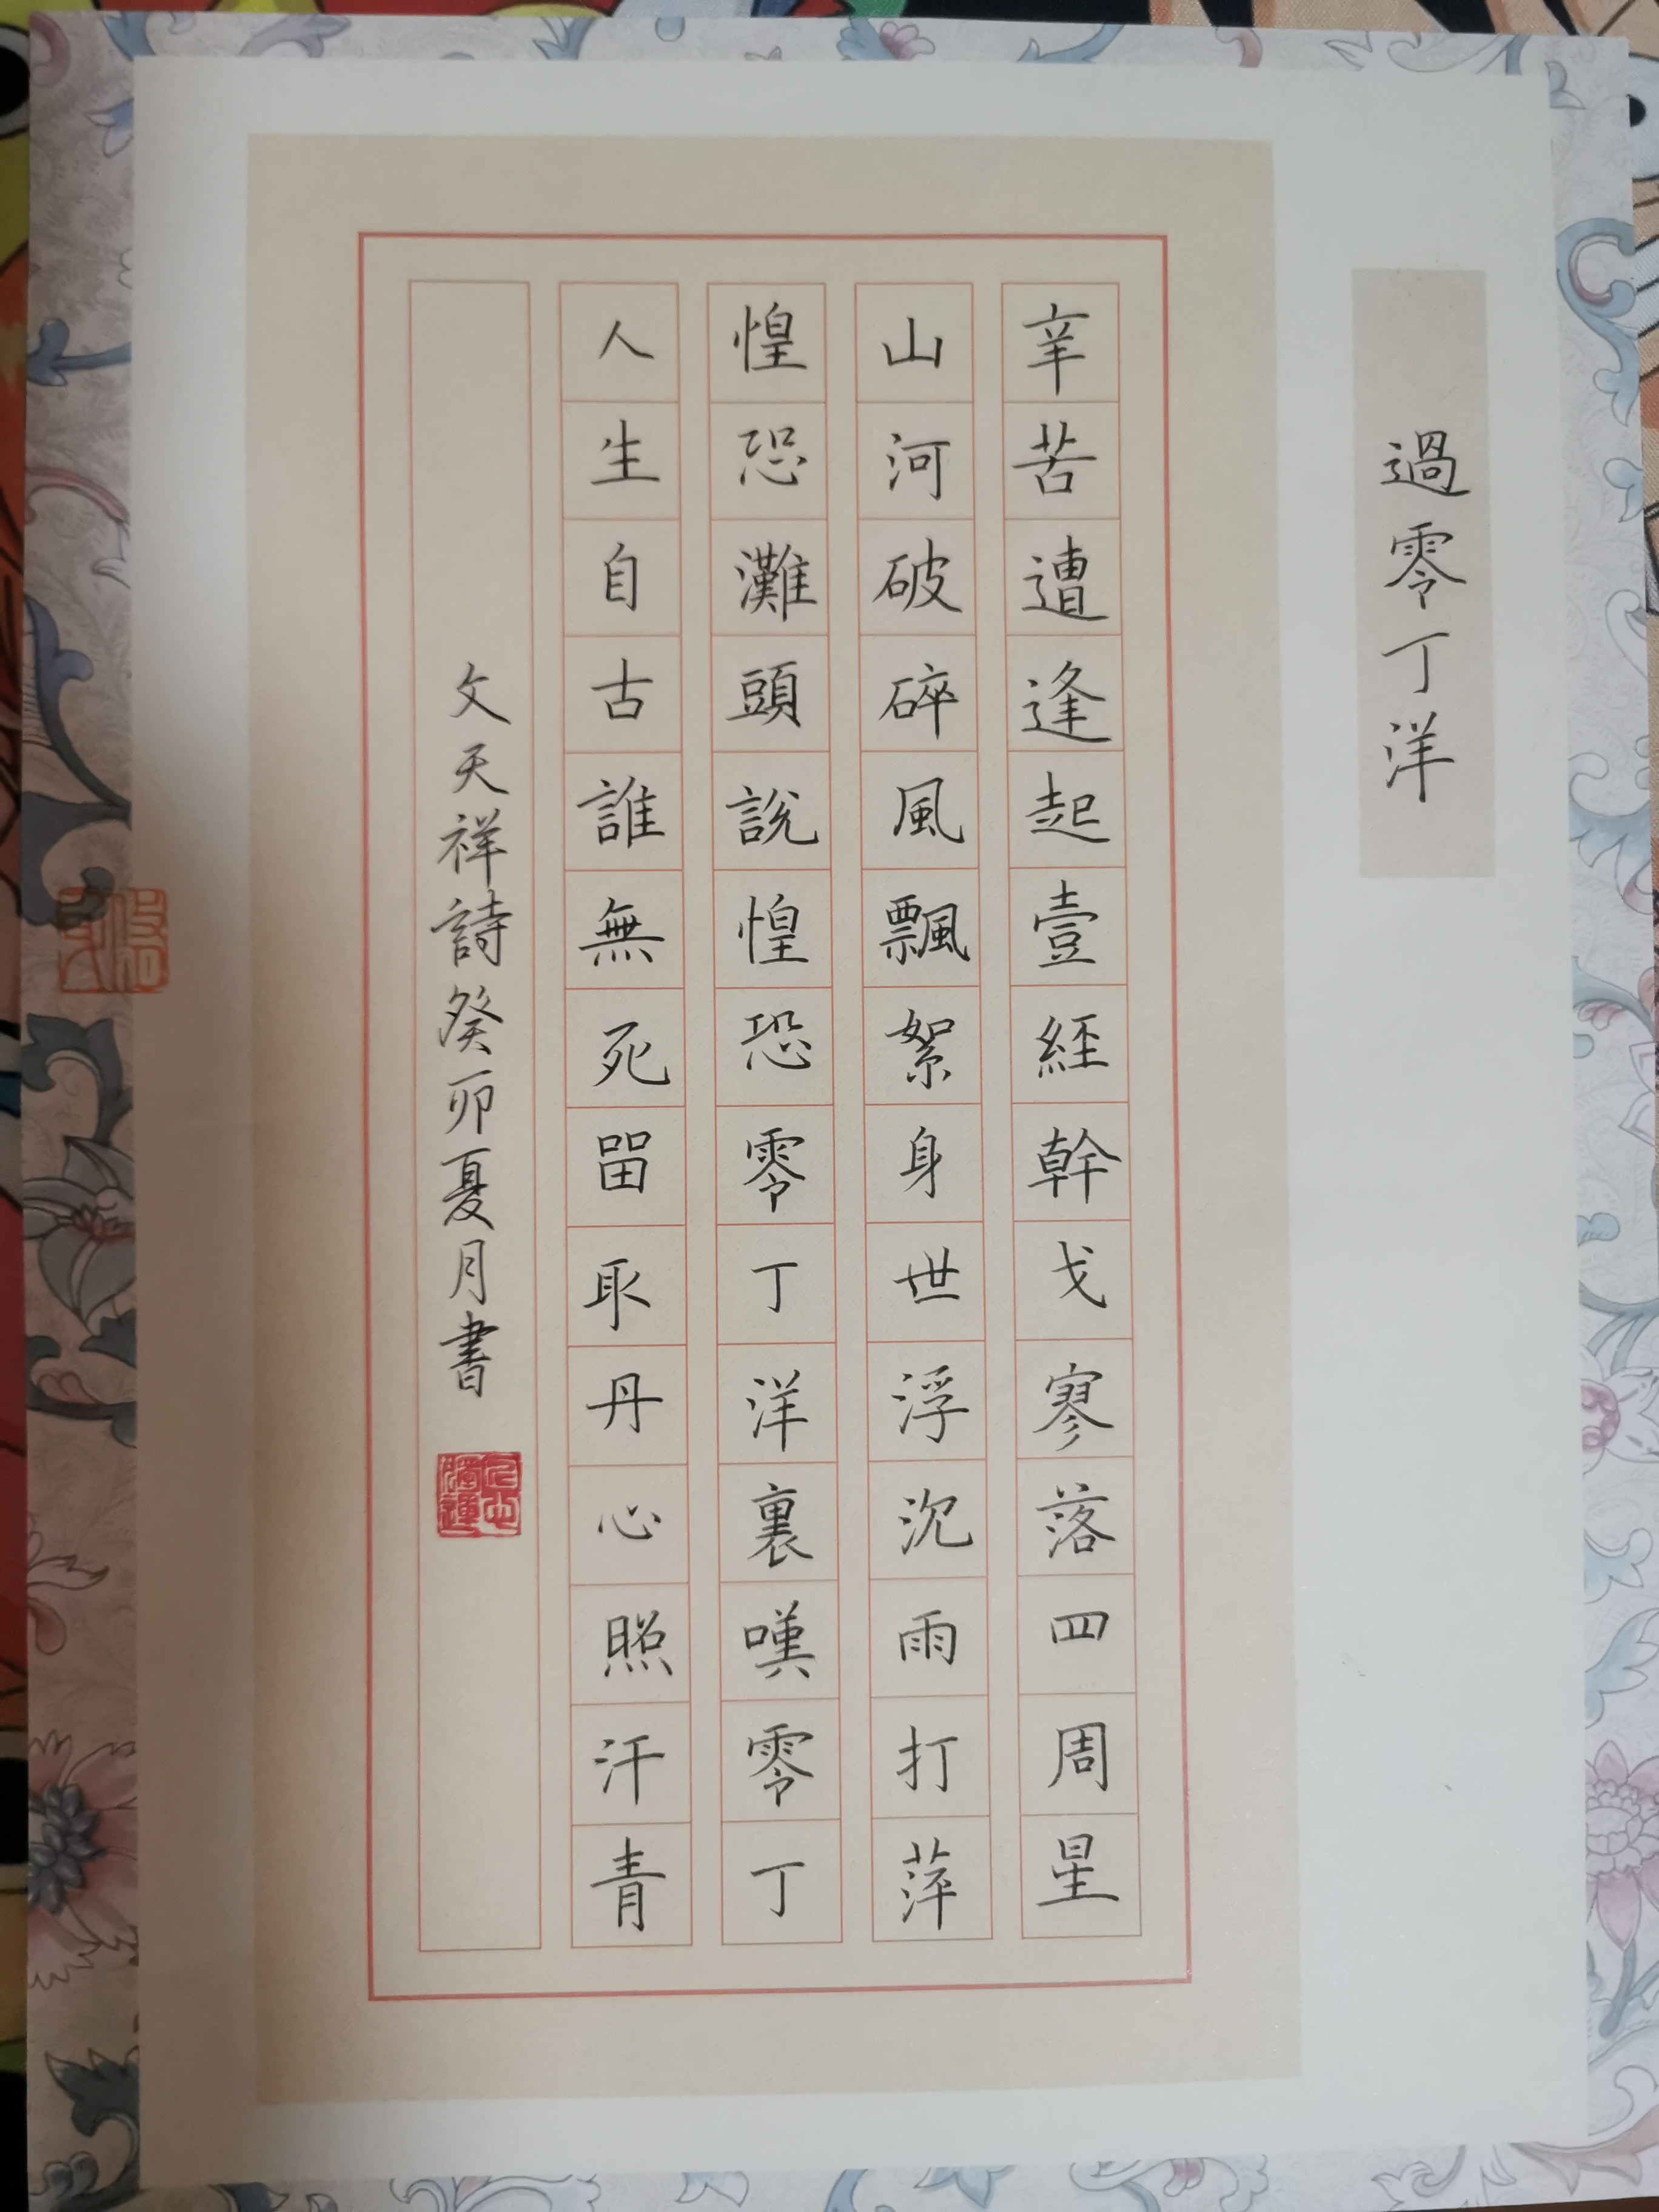 過零丁洋
辛苦遭逢起壹經幹戈寥落四周星
山河破碎風飄絮身世浮沉雨打萍
惶恐灘頭說惶恐零丁洋裏嘆零丁
人生自古誰無死留取丹心照汗青
文天祥詩癸卯夏月書